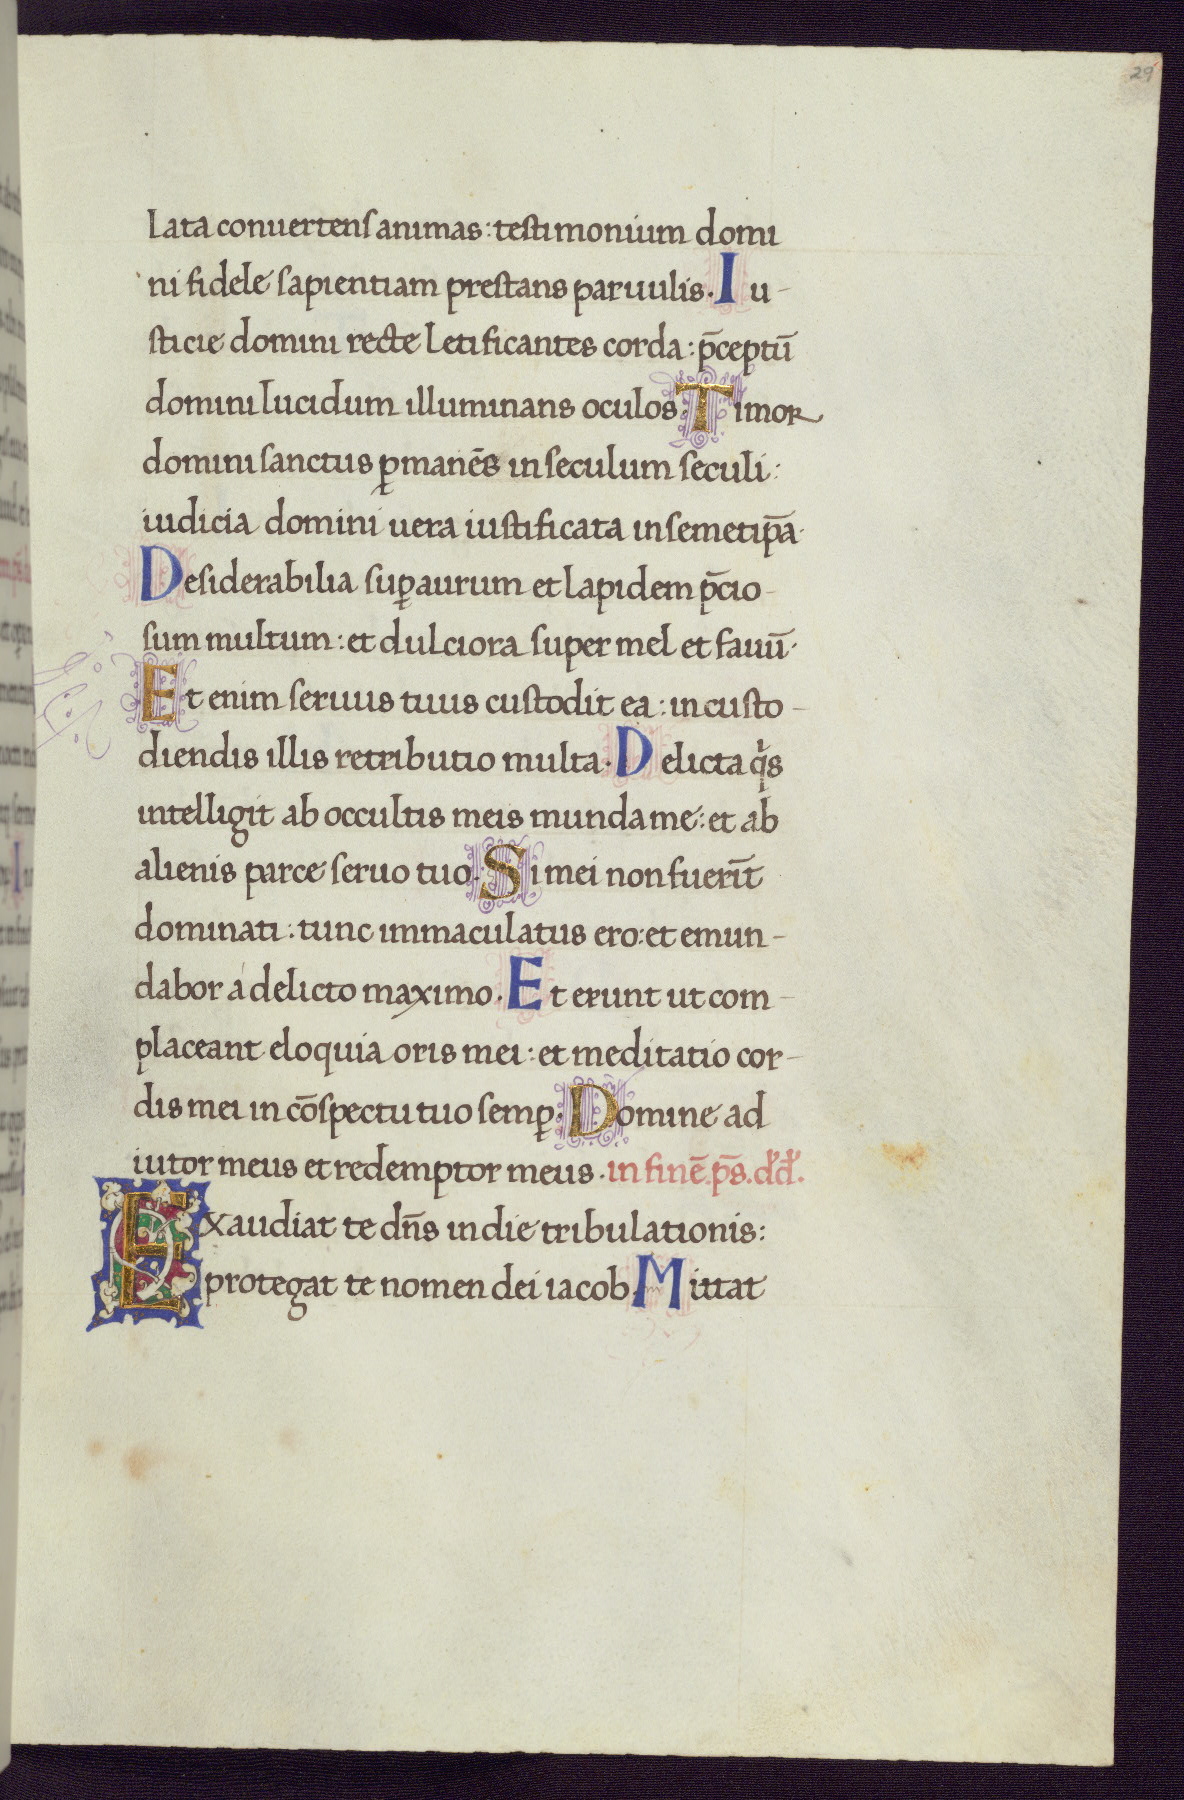 29
lata conuertens animas: testimonium domi
ni fidele sapientiam prestans paruulis. Iu-
sticie domini recte letificantes corda: p̄ceptū
domini lucidum illuminans oculos. Timor
domini sanctus ꝑmanēs in seculum seculi:
iudicia domini uera iustificata in semetip̄a.
Desiderabilia suꝑ aurum et lapidem p̄cio-
sum multum: et dulciora super mel et fauū.
Et enim seruus tuus custodit ea: in custo-
diendis illis retributio multa. Delicta qͥs
intelligit ab occultis meis munda me: et ab
alienis parce seruo tuo. Si mei non fuerīt
dominati: tunc immaculatus ero: et emun-
dabor a delicto maximo. Et erunt ut com-
placeant eloquia oris mei: et meditatio cor-
dis mei in cōspectu tuo semꝑ. Domine ad
iutor meus et redemptor meus. in finē. p̄s. d'd'.
Exaudiat te dn̄s in die tribulationis:
protegat te nomen dei iacob. Mittat